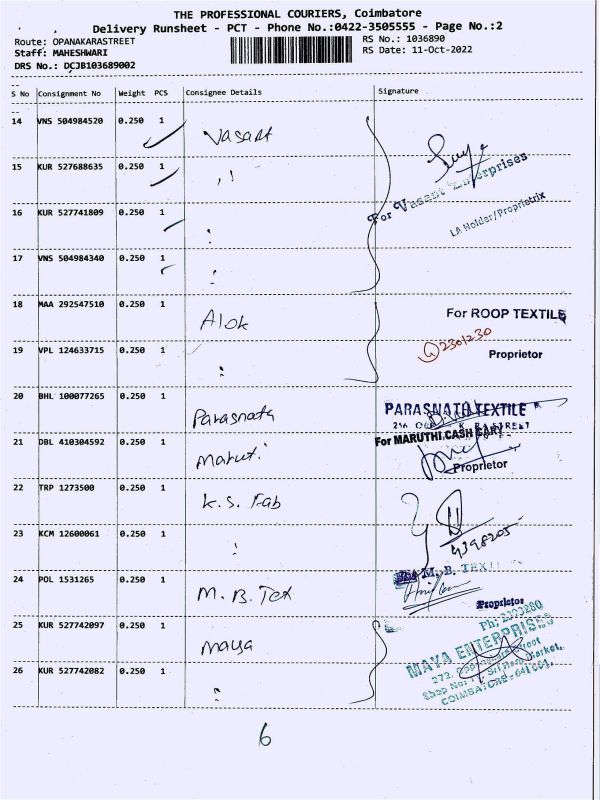 THE PROFESSIONAL COURIERS, Coimbatore
Delivery Runsheet - PCT - Phone No.:0422-3505555 - Page No.:2
Route: OPANAKARASTREET
RS No.: 1036890
Staff: MAHESHWARI
RS Date: 11-Oct-2022
DRS No.: DCJB103689002
S No Consignment No Weight PCS Consignee Details Signature
14 VNS 504984520 0.250 1 Vasant
15 KUR 527688635 0.250 1 ,,
For Vasant Enterprises
16 KUR 527741809 0.250 1 :
LA Holder/Proprietrix
17 VNS 504984340 0.250 1 :
18 MAA 292547510 0.250 1 Alok
For ROOP TEXTILE
2301230
19 VPL 124633715 0.250 1 :
Proprietor
20 BHL 100077265 0.250 1 Parasnath
PARASNATH TEXTILE
For MARUTHI CASH CARY
21 DBL 410304592 0.250 1 Maruti
Proprietor
22 TRP 1273500 0.250 1 K.S. Fab
23 KCM 12600061 0.250 1 :
24 POL 1531265 0.250 1 M.B. Tex
M. B. TEX
Proprietor
25 KUR 527742097 0.250 1 Maya
Ph: 2373280
MAYA ENTERPRISES
26 KUR 527742082 0.250 1 :
COIMBATORE - 641 001.
6